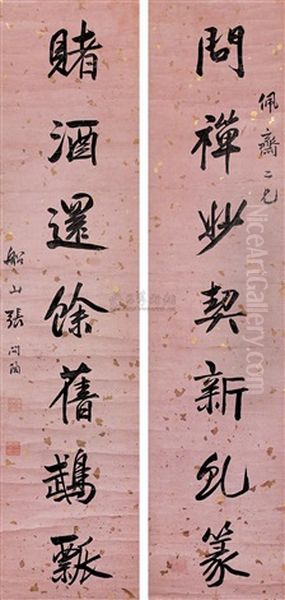 佩齋二兄
問禪妙契新乩篆
賭酒還餘舊鵡瓢
船山張問陶